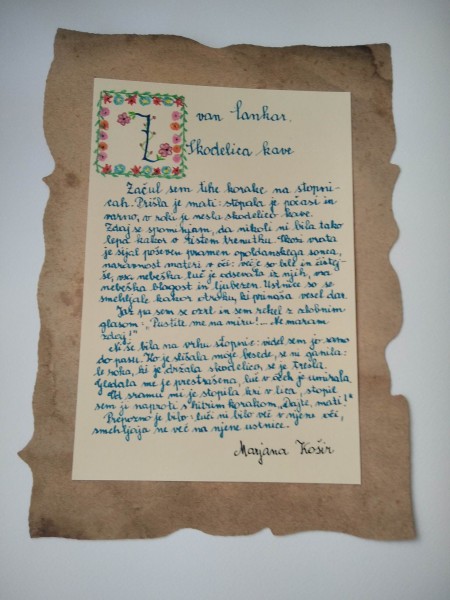 I
van Cankar.
Skodelica kave
Začul sem tihe korake na stopni-
cah. Prišla je mati; stopala je počasi in
varno, v roki je nesla skodelico kave.
Zdaj se spominjam, da nikoli ni bila tako
lepa kakor v tistem trenutku. Skozi vrata
je sijal poševen pramen opoldanskega sonca,
naravnost materi v oči: večje so bile in čistej-
še, vsa nebeška luč je odsevala iz njih, vsa
nebeška blagost in ljubezen. Ustnice so se
smehljale kakor otroku, ki prinaša vesel dar.
Jaz pa sem se ozrl in sem rekel z zlobnim
glasom: „Pustite me na miru! - Ne maram
zdaj!"
Ni še bila na vrhu stopnic: videl sem jo samo
do pasu. Ko je slišala moje besede, se ni ganila:
le roka, ki je držala skodelico, se je tresla.
Gledala me je prestrašena, luč v očeh je umirala.
Od sramu mi je stopila kri v lica, stopil
sem ji naproti s hitrim korakom. „Dajte, mati!"
Prepozno je bilo: luči ni bilo več v njene oči,
smehljaja ne več na njene ustnice.
Marjana Košir